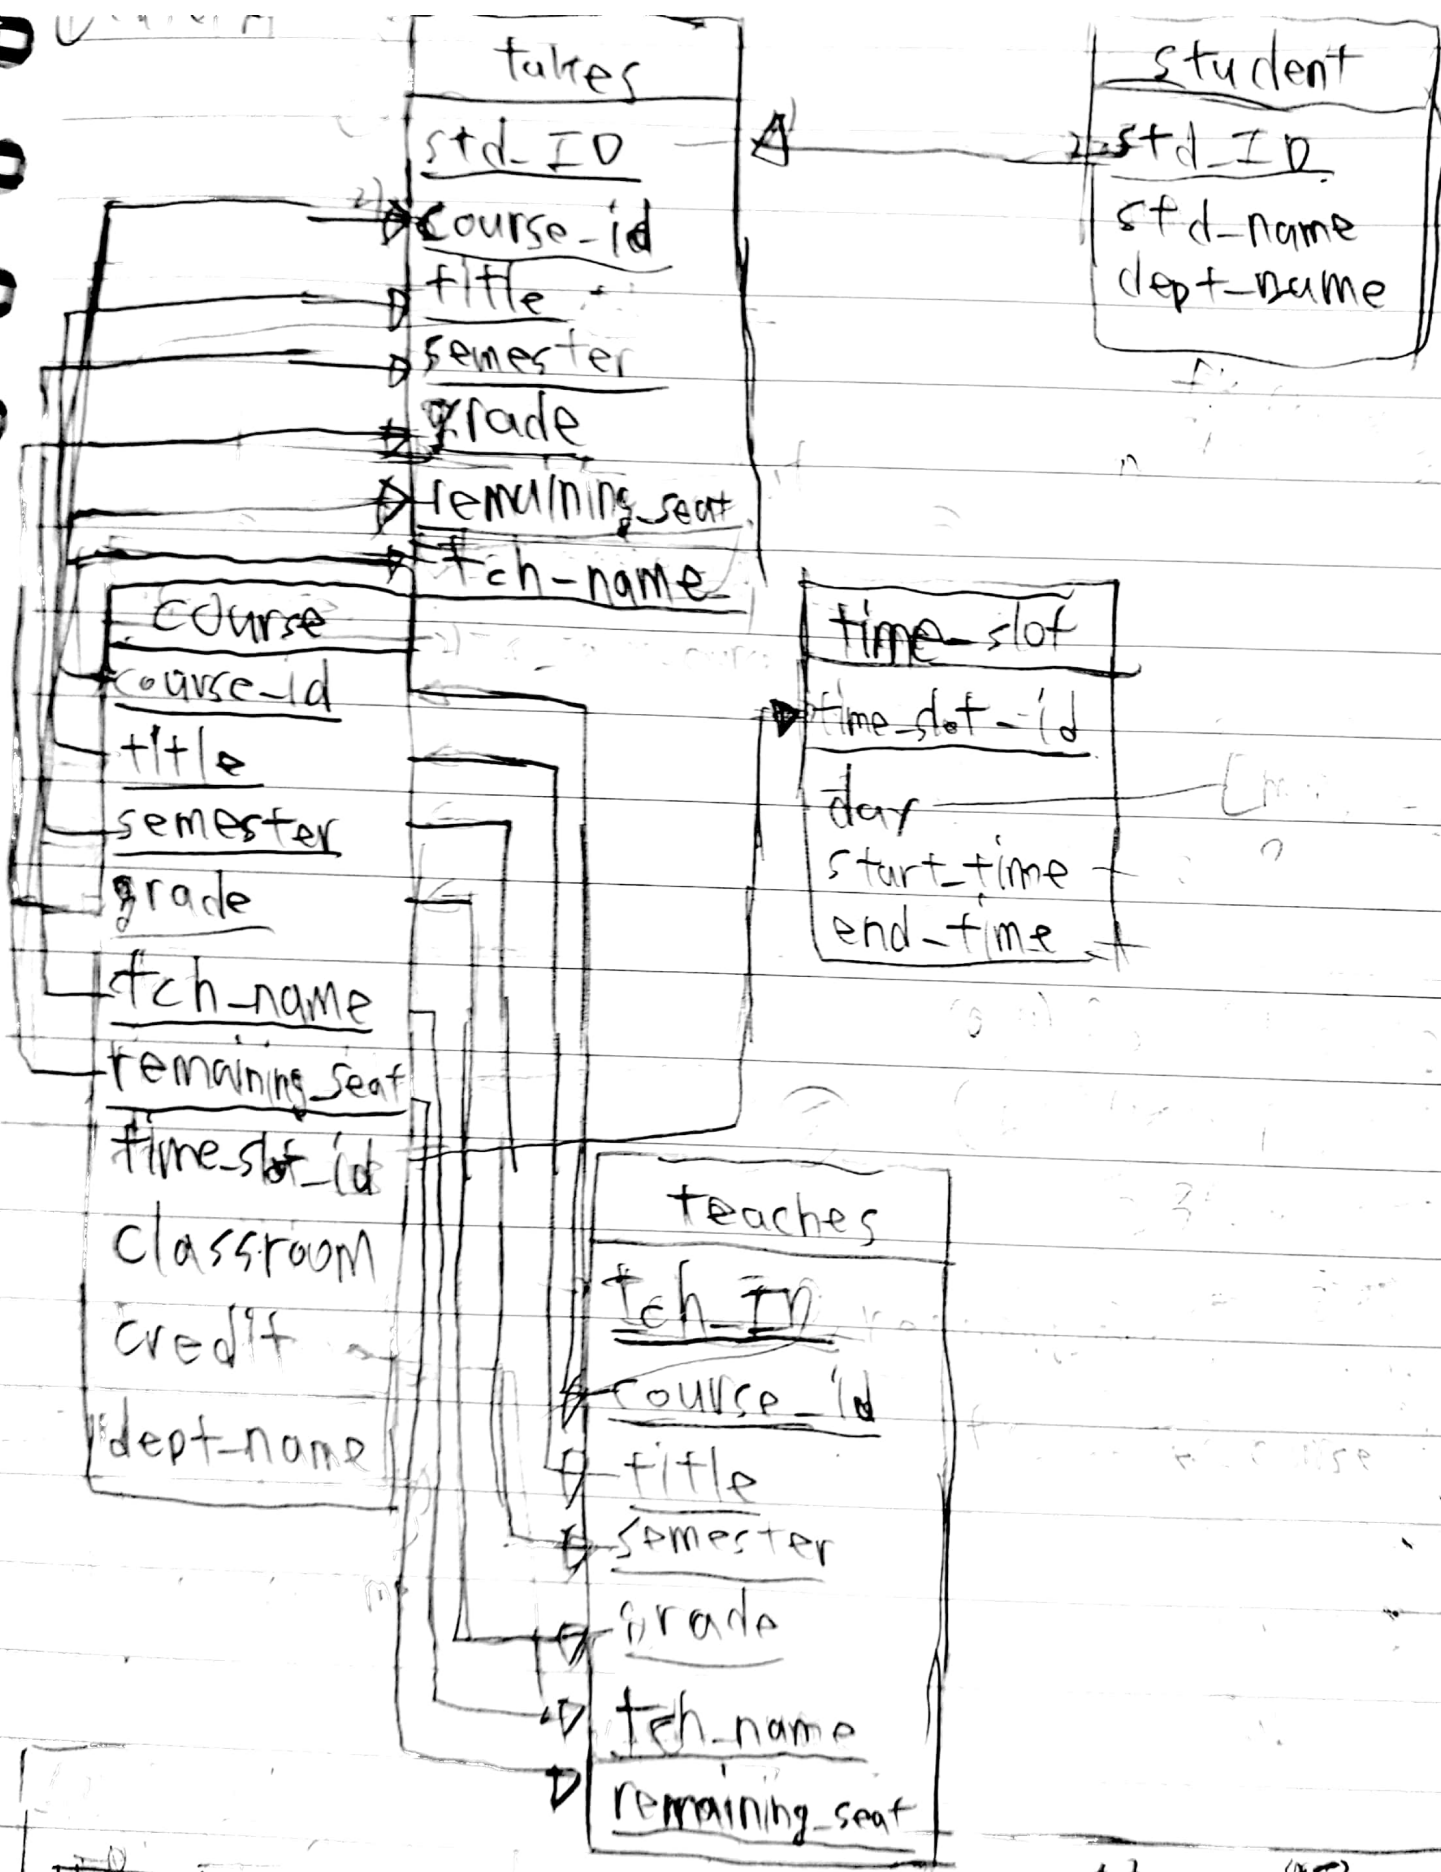 takes
std_ID
course_id
title
semester
grade
remaining_seat
tch_name
student
std_ID
std_name
dept_name
course
course_id
title
semester
grade
tch_name
remaining_seat
time_slot_id
classroom
credit
dept_name
time_slot
time_slot_id
day
start_time
end_time
teaches
tch_ID
course_id
title
semester
grade
tch_name
remaining_seat